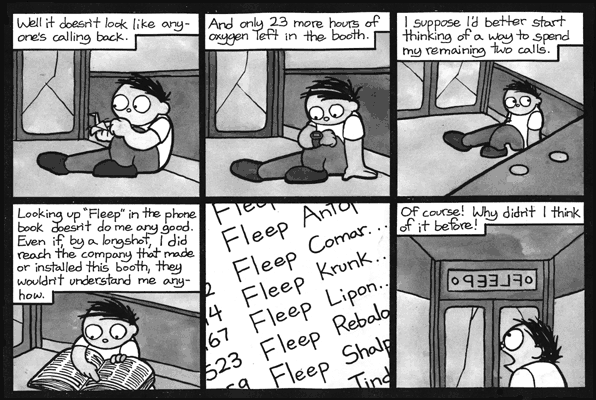 Well it doesn't look like any-
one's calling back.
And only 23 more hours of
oxygen left in the booth.
I suppose I'd better start
thinking of a way to spend
my remaining two calls.
Looking up "Fleep" in the phone
book doesn't do me any good.
Even if, by a longshot, I did
reach the company that made
or installed this booth, they
wouldn't understand me any-
how.
Fleep
Fleep Antop
Fleep Comar...
2 Fleep Krunk...
14 Fleep Lipon...
67 Fleep Rebala
523 Fleep Shalp
59 Tind
Of course! Why didn't I think
of it before!
OFLEEPO